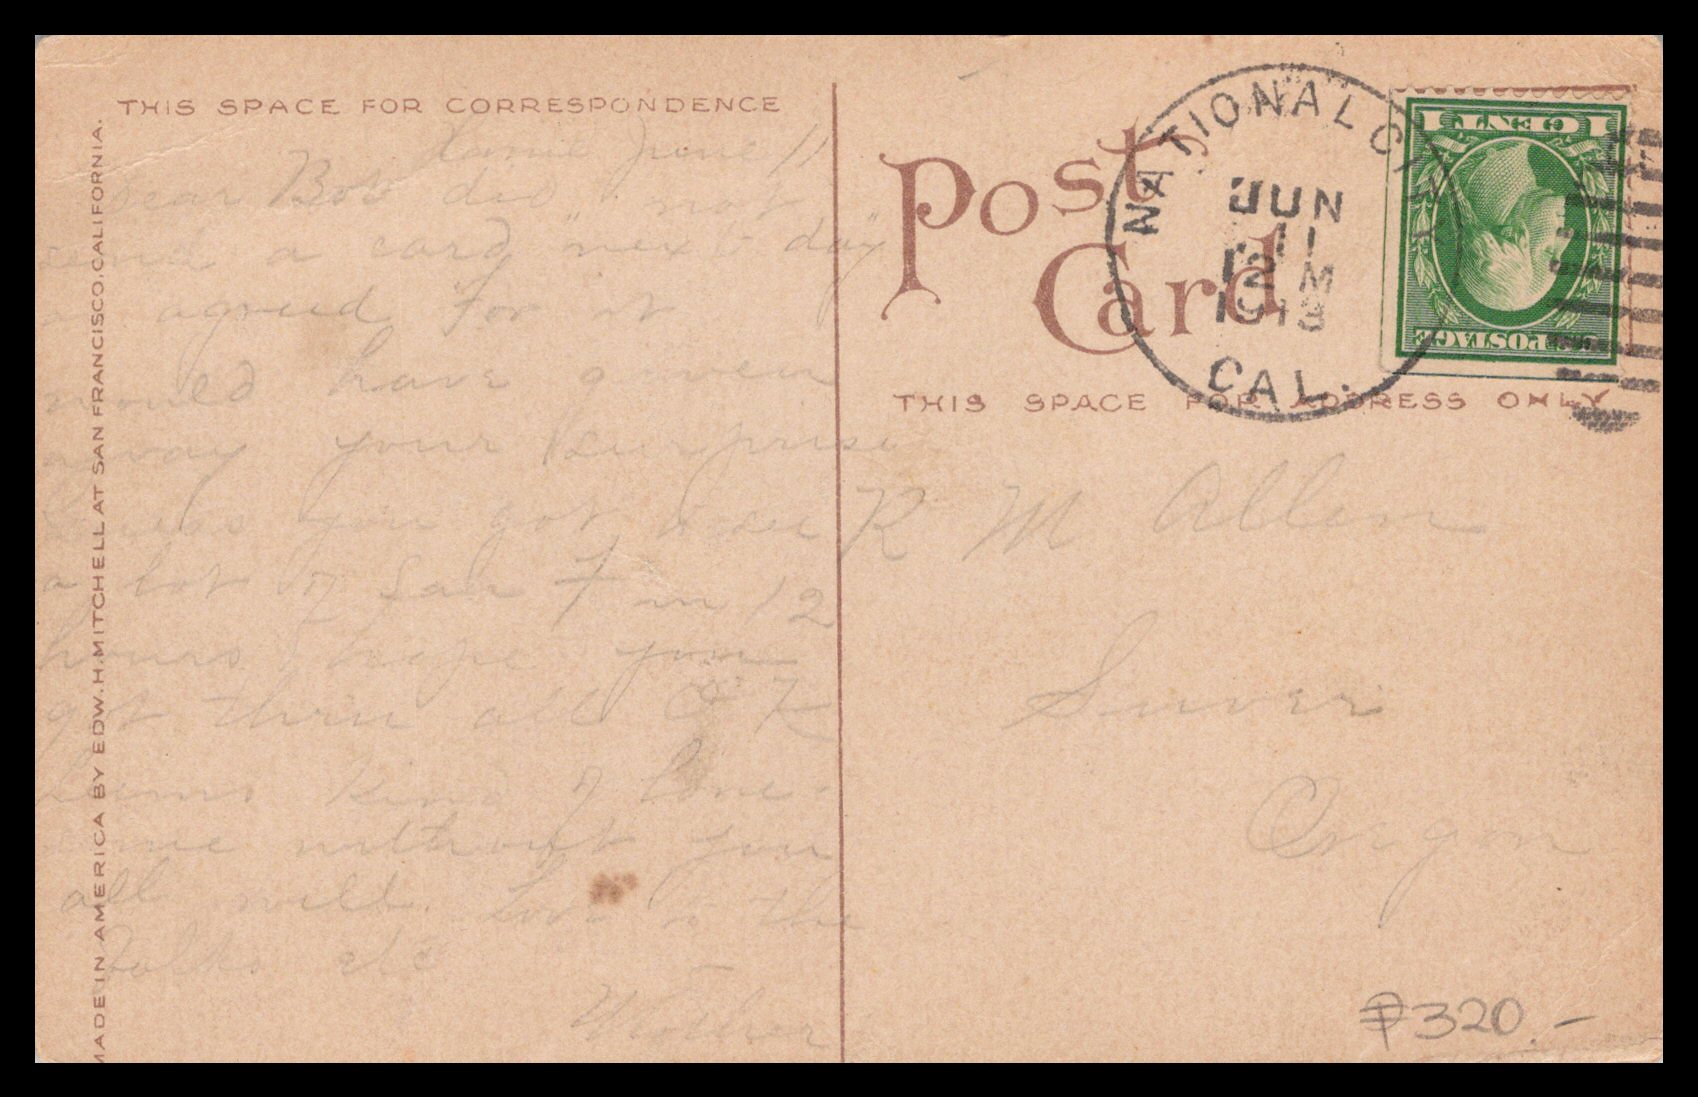 THIS SPACE FOR CORRESPONDENCE
Home June 11
Dear Bob did not
send a card "next day"
as agreed for it
would have given
away your surprise
Guess you got to see
a lot of San F in 12
hours hope you
got thru all O K
Seems kind of lone-
some without you
all well. Love to the
folks etc
Mother
MADE IN AMERICA BY EDW.H.MITCHELL AT SAN FRANCISCO,CALIFORNIA.
Post Card
NATIONAL CITY
JUN
11
12 M
1913
CAL.
1 CENT 1
U.S. POSTAGE
THIS SPACE FOR ADDRESS ONLY
R M Allen
Suver
Oregon
₱320.-